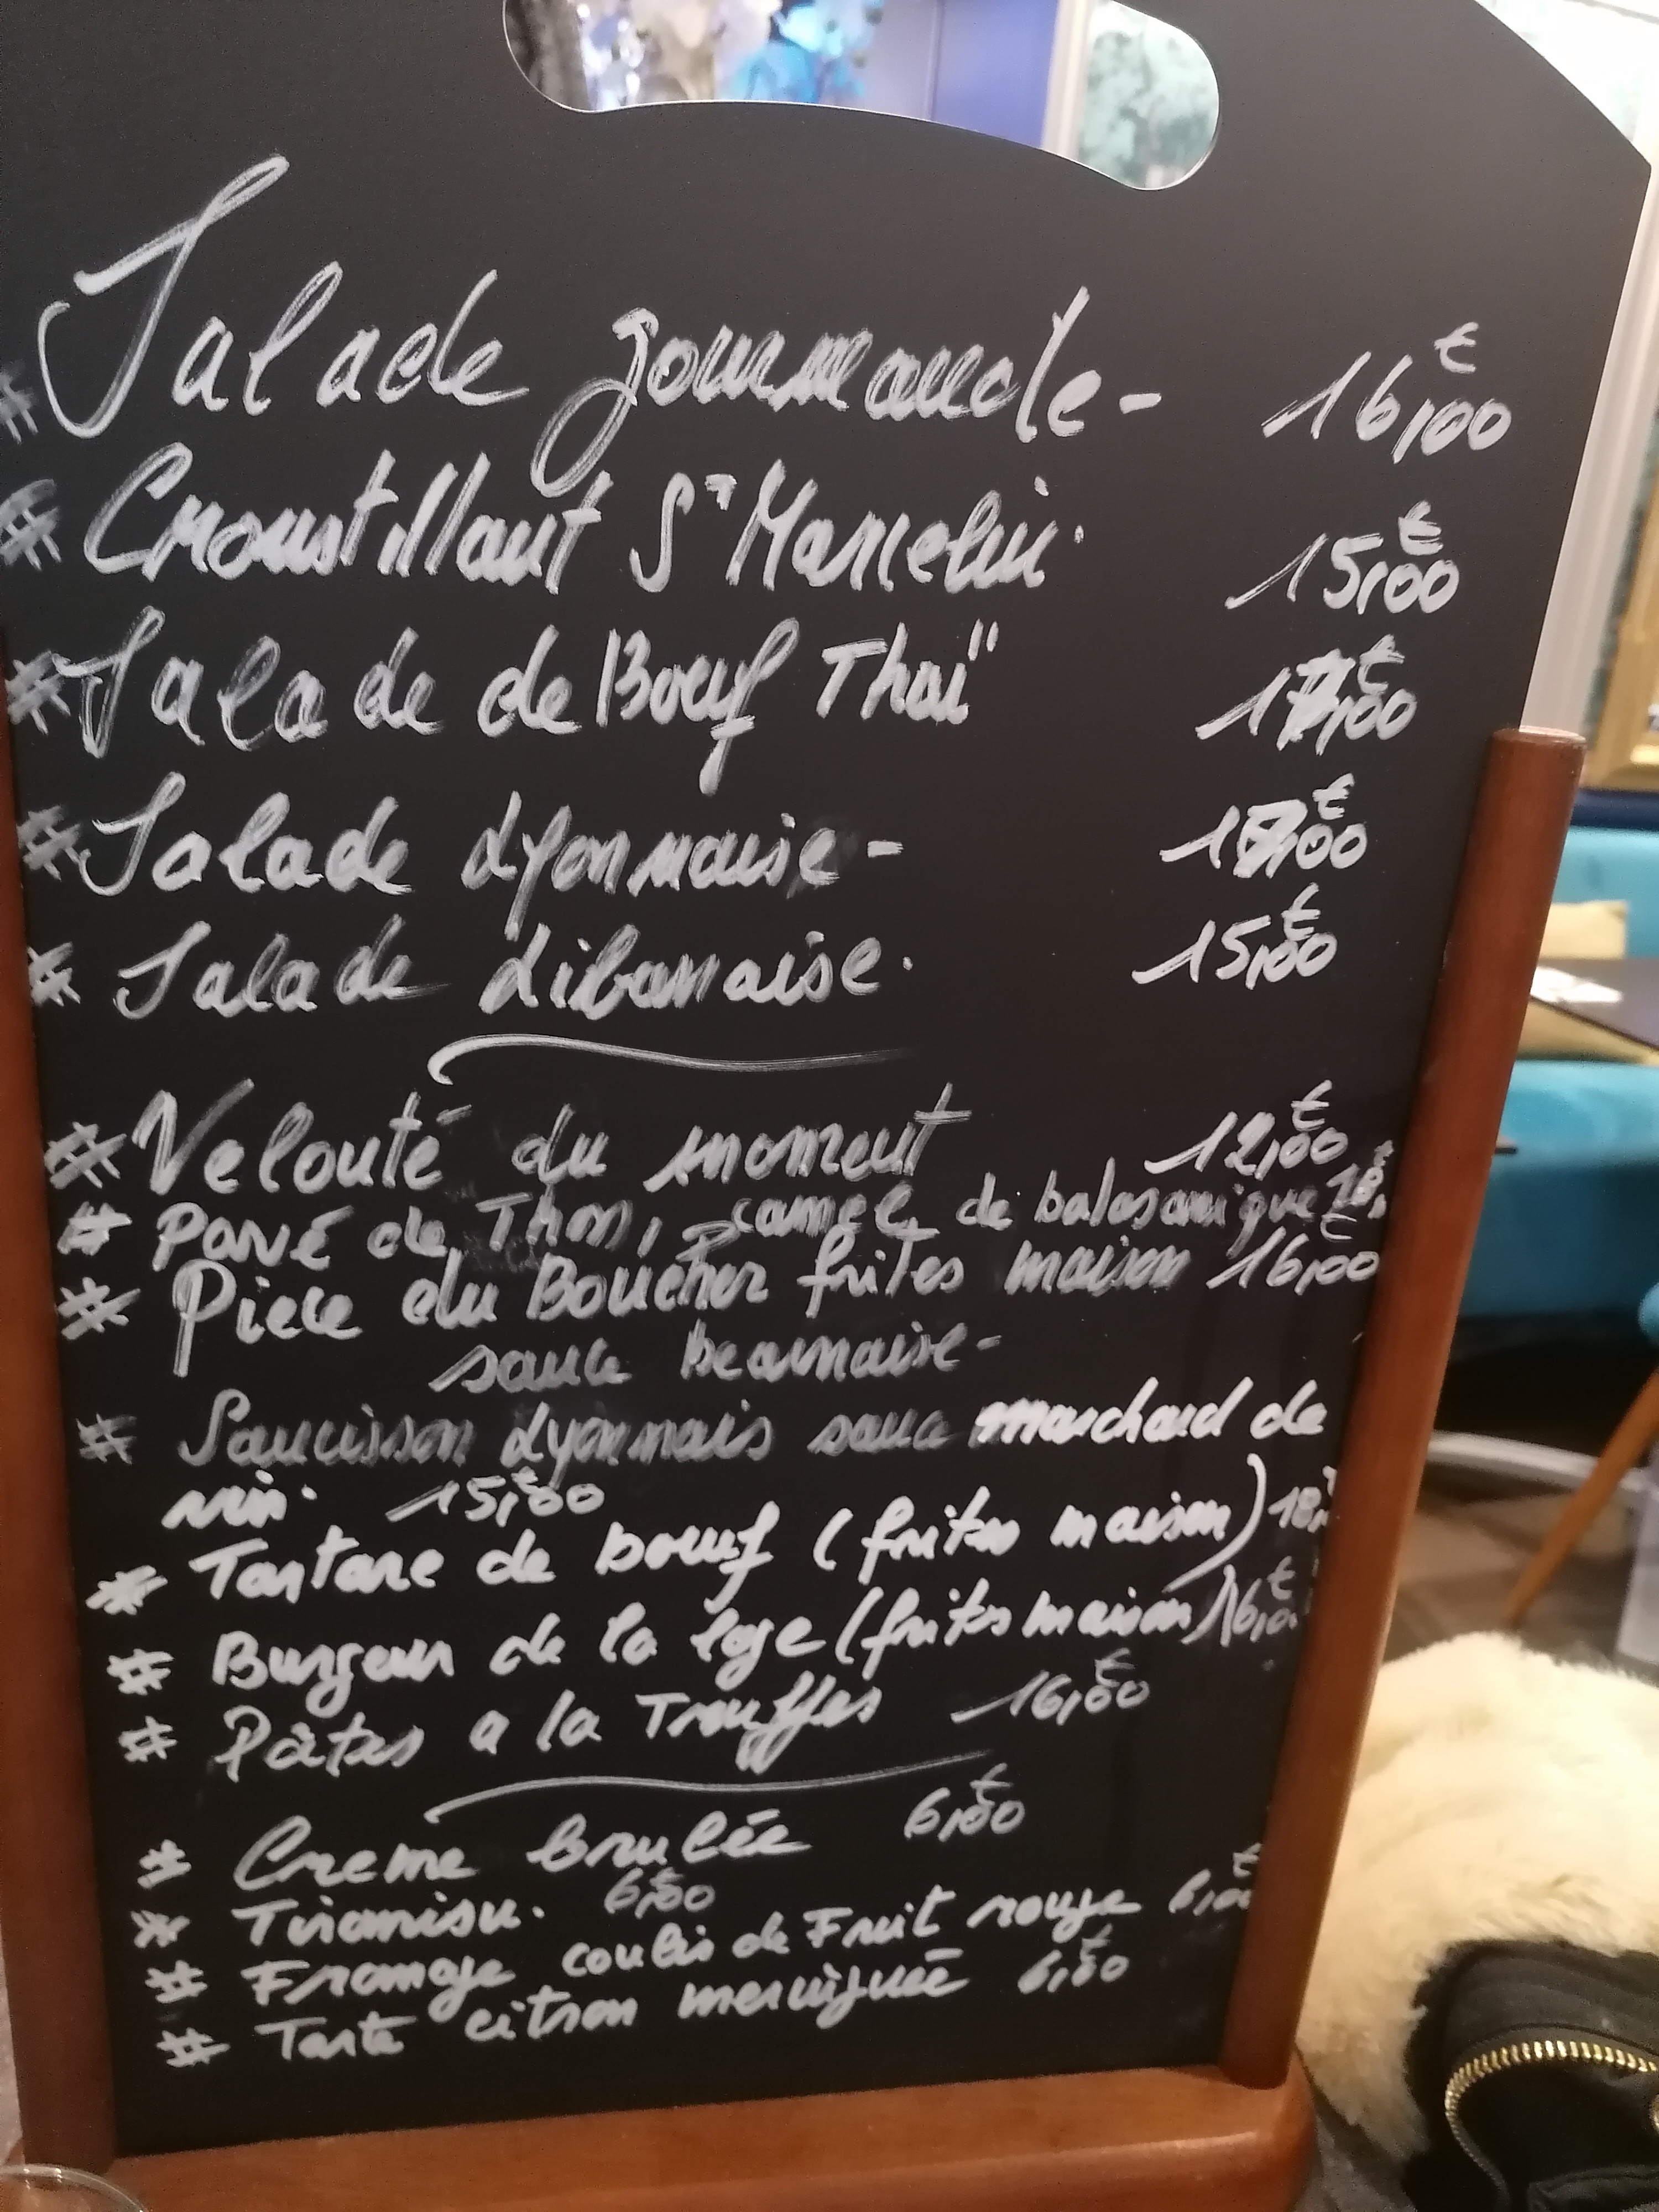 # Salade gourmande - 16,00€
# Croustillant St Marcelin. 15,00€
# Salade de Boeuf Thaï 17,00€
# Salade Lyonnaise - 00€
# Salade Libanaise. 15,00€
# Velouté du moment 12,00€
# PAVÉ de Thon, de balasamique 18
# Piece du Boucher frites maison 16,00€
sauce bearnaise -
# Saucisson Lyonnais sauce marchand de
vin. 15,00€
# Tartare de boeuf (frites maison) 18,
# Burger de la loge (frites maison) 16,0€
# Pâtes a la Truffes 16,00€
# Creme brulée 6,00€
# Tiramisu. 6,00€
# Fromage coulis de Fruit rouge 6,00€
# Tarte citron meringuée 6,00€